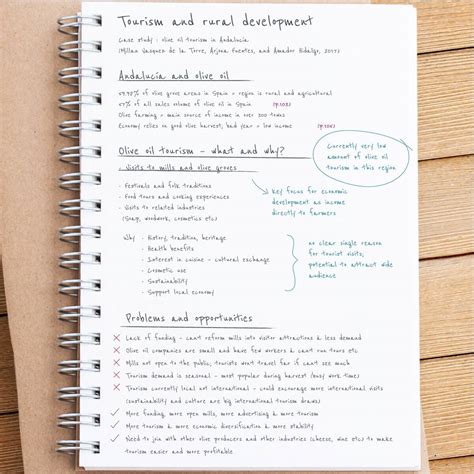 Tourism and rural development
Case study - olive oil tourism in Andalucia
(Millan Vasquez de la Torre, Arjona Fuentes, and Amador Hidalgo, 2017)
Andalucia and olive oil
of olive grove areas in Spain = region is rural and agricultural
of all sales volume of olive oil in Spain (p.102)
Olive farming = main source of income in over 300 towns
Economy relies on good olive harvest, bad year = low income (p.102)
Olive oil tourism - what and why?
Currently very low
amount of olive oil
tourism in this region
- Visits to mills and olive groves
- Festivals and folk traditions
- Food tours and cooking experiences
- Visits to related industries
(soap, woodwork, cosmetics etc)
key focus for economic
development as income
directly to farmers
Why - History, tradition, heritage
- Health benefits
- Interest in cuisine - cultural exchange
- Cosmetic use
- Sustainability
- Support local economy
no clear single reason
for tourist visits,
potential to attract wide
audience
Problems and opportunities
Lack of funding - can't reform mills into visitor attractions & less demand
Olive oil companies are small and have few workers & can't run tours etc
Mills not open to the public; tourists won't travel far if can't see much
Tourism demand is seasonal - most popular during harvest (busy work times)
Tourism currently local not international - could encourage more international visits
(sustainability and culture are big international tourism draws)
More funding, more open mills, more advertising & more tourism
More tourism & more economic diversification & more stability
Need to join with other olive producers and other industries (cheese, wine etc) to make
tourism easier and more profitable